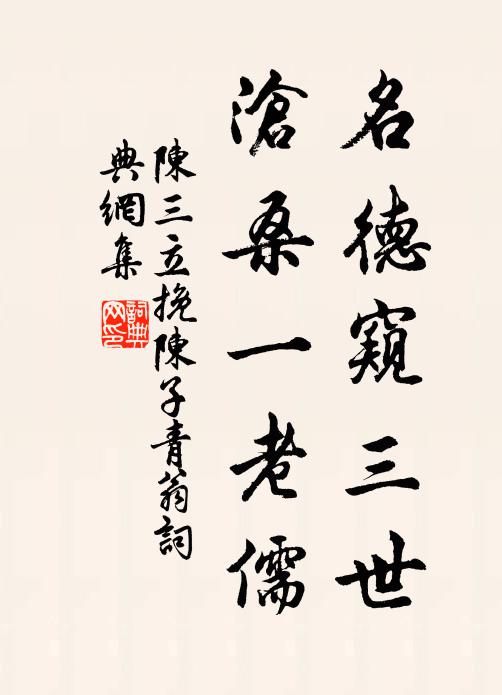 名德窺三世
滄桑一老儒
陳三立挽陳子青翁詞
典網集
詞典網印